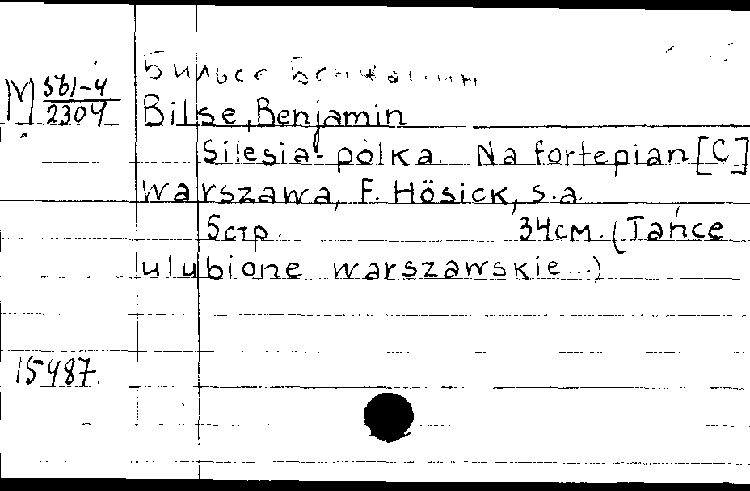 Бильсе Бенжамин
М 561-4
2304
Bilse, Benjamin
Silesia-polka. Na fortepian [C]
Warszawa, F. Hösick, s.a.
5стр. 34см. (Tańce
ulubione warszawskie..)
15487.